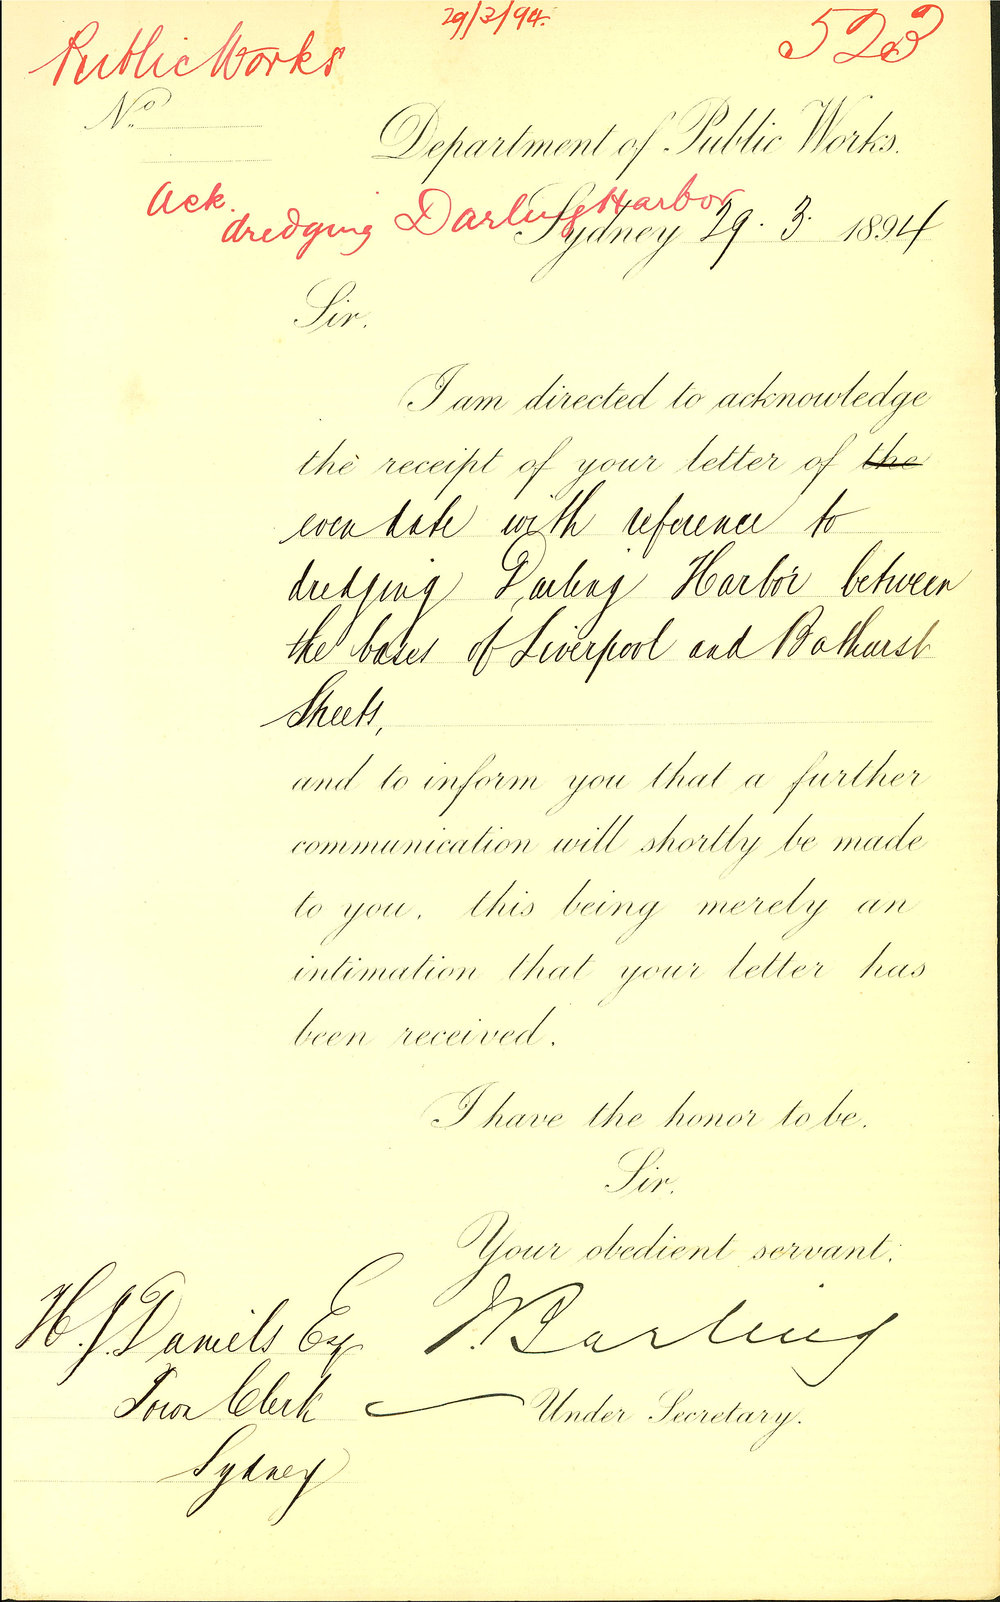 29/3/94.
523
Public Works
No
Department of Public Works.
Ack.
dredging Darling Harbor
Sydney 29. 3. 1894
Sir.
I am directed to acknowledge
the receipt of your letter of the
even date with reference to
dredging Darling Harbor between
the bases of Liverpool and Bathurst
Streets,
and to inform you that a further
communication will shortly be made
to you, this being merely an
intimation that your letter has
been received.
I have the honor to be,
Sir,
Your obedient servant,
H. J. Daniels Esq
Barling
Town Clerk
Under Secretary.
Sydney